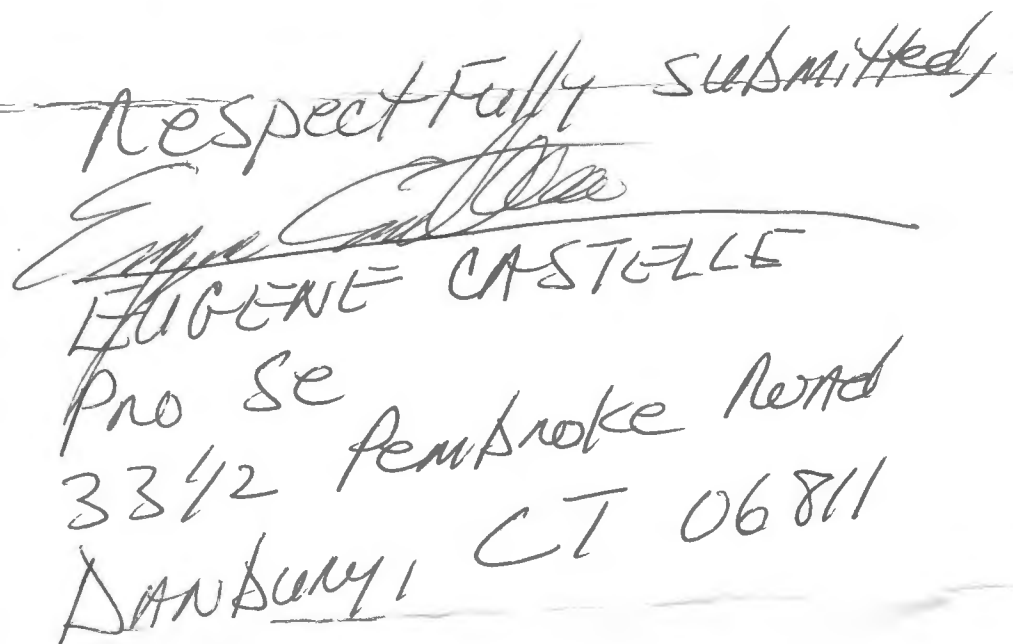 Respectfully submitted,
Eugene Castelle
EUGENE CASTELLE
Pro Se
33 1/2 Pembroke Road
DANBURY, CT 06811